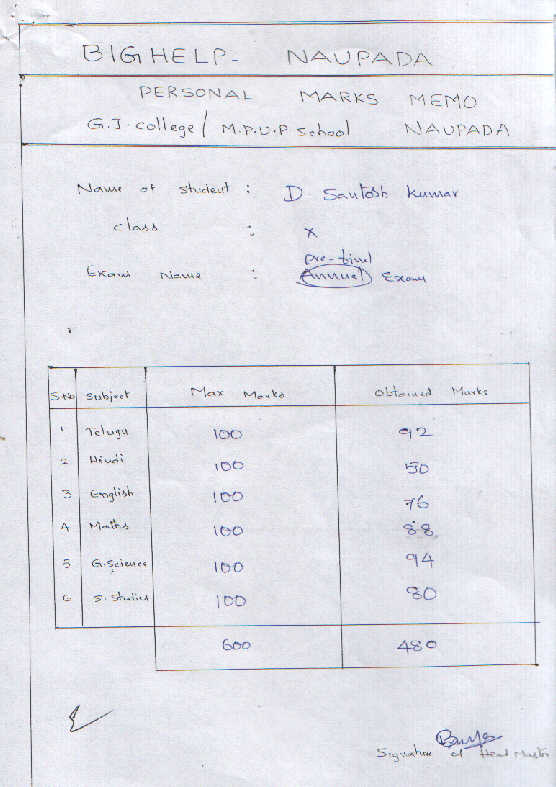 BIG HELP - NAUPADA
PERSONAL MARKS MEMO
G.J. college / M.P.U.P School NAUPADA
Name of student : D Santosh Kumar
class : X
pre-final
Exam Name : Annual Exam
S.No Subject Max Marks Obtained Marks
1 Telugu 100 92
2 Hindi 100 50
3 English 100 76
4 Maths 100 88
5 G. Science 100 94
6 S. Studies 100 80
600 480
Signature of Head Master